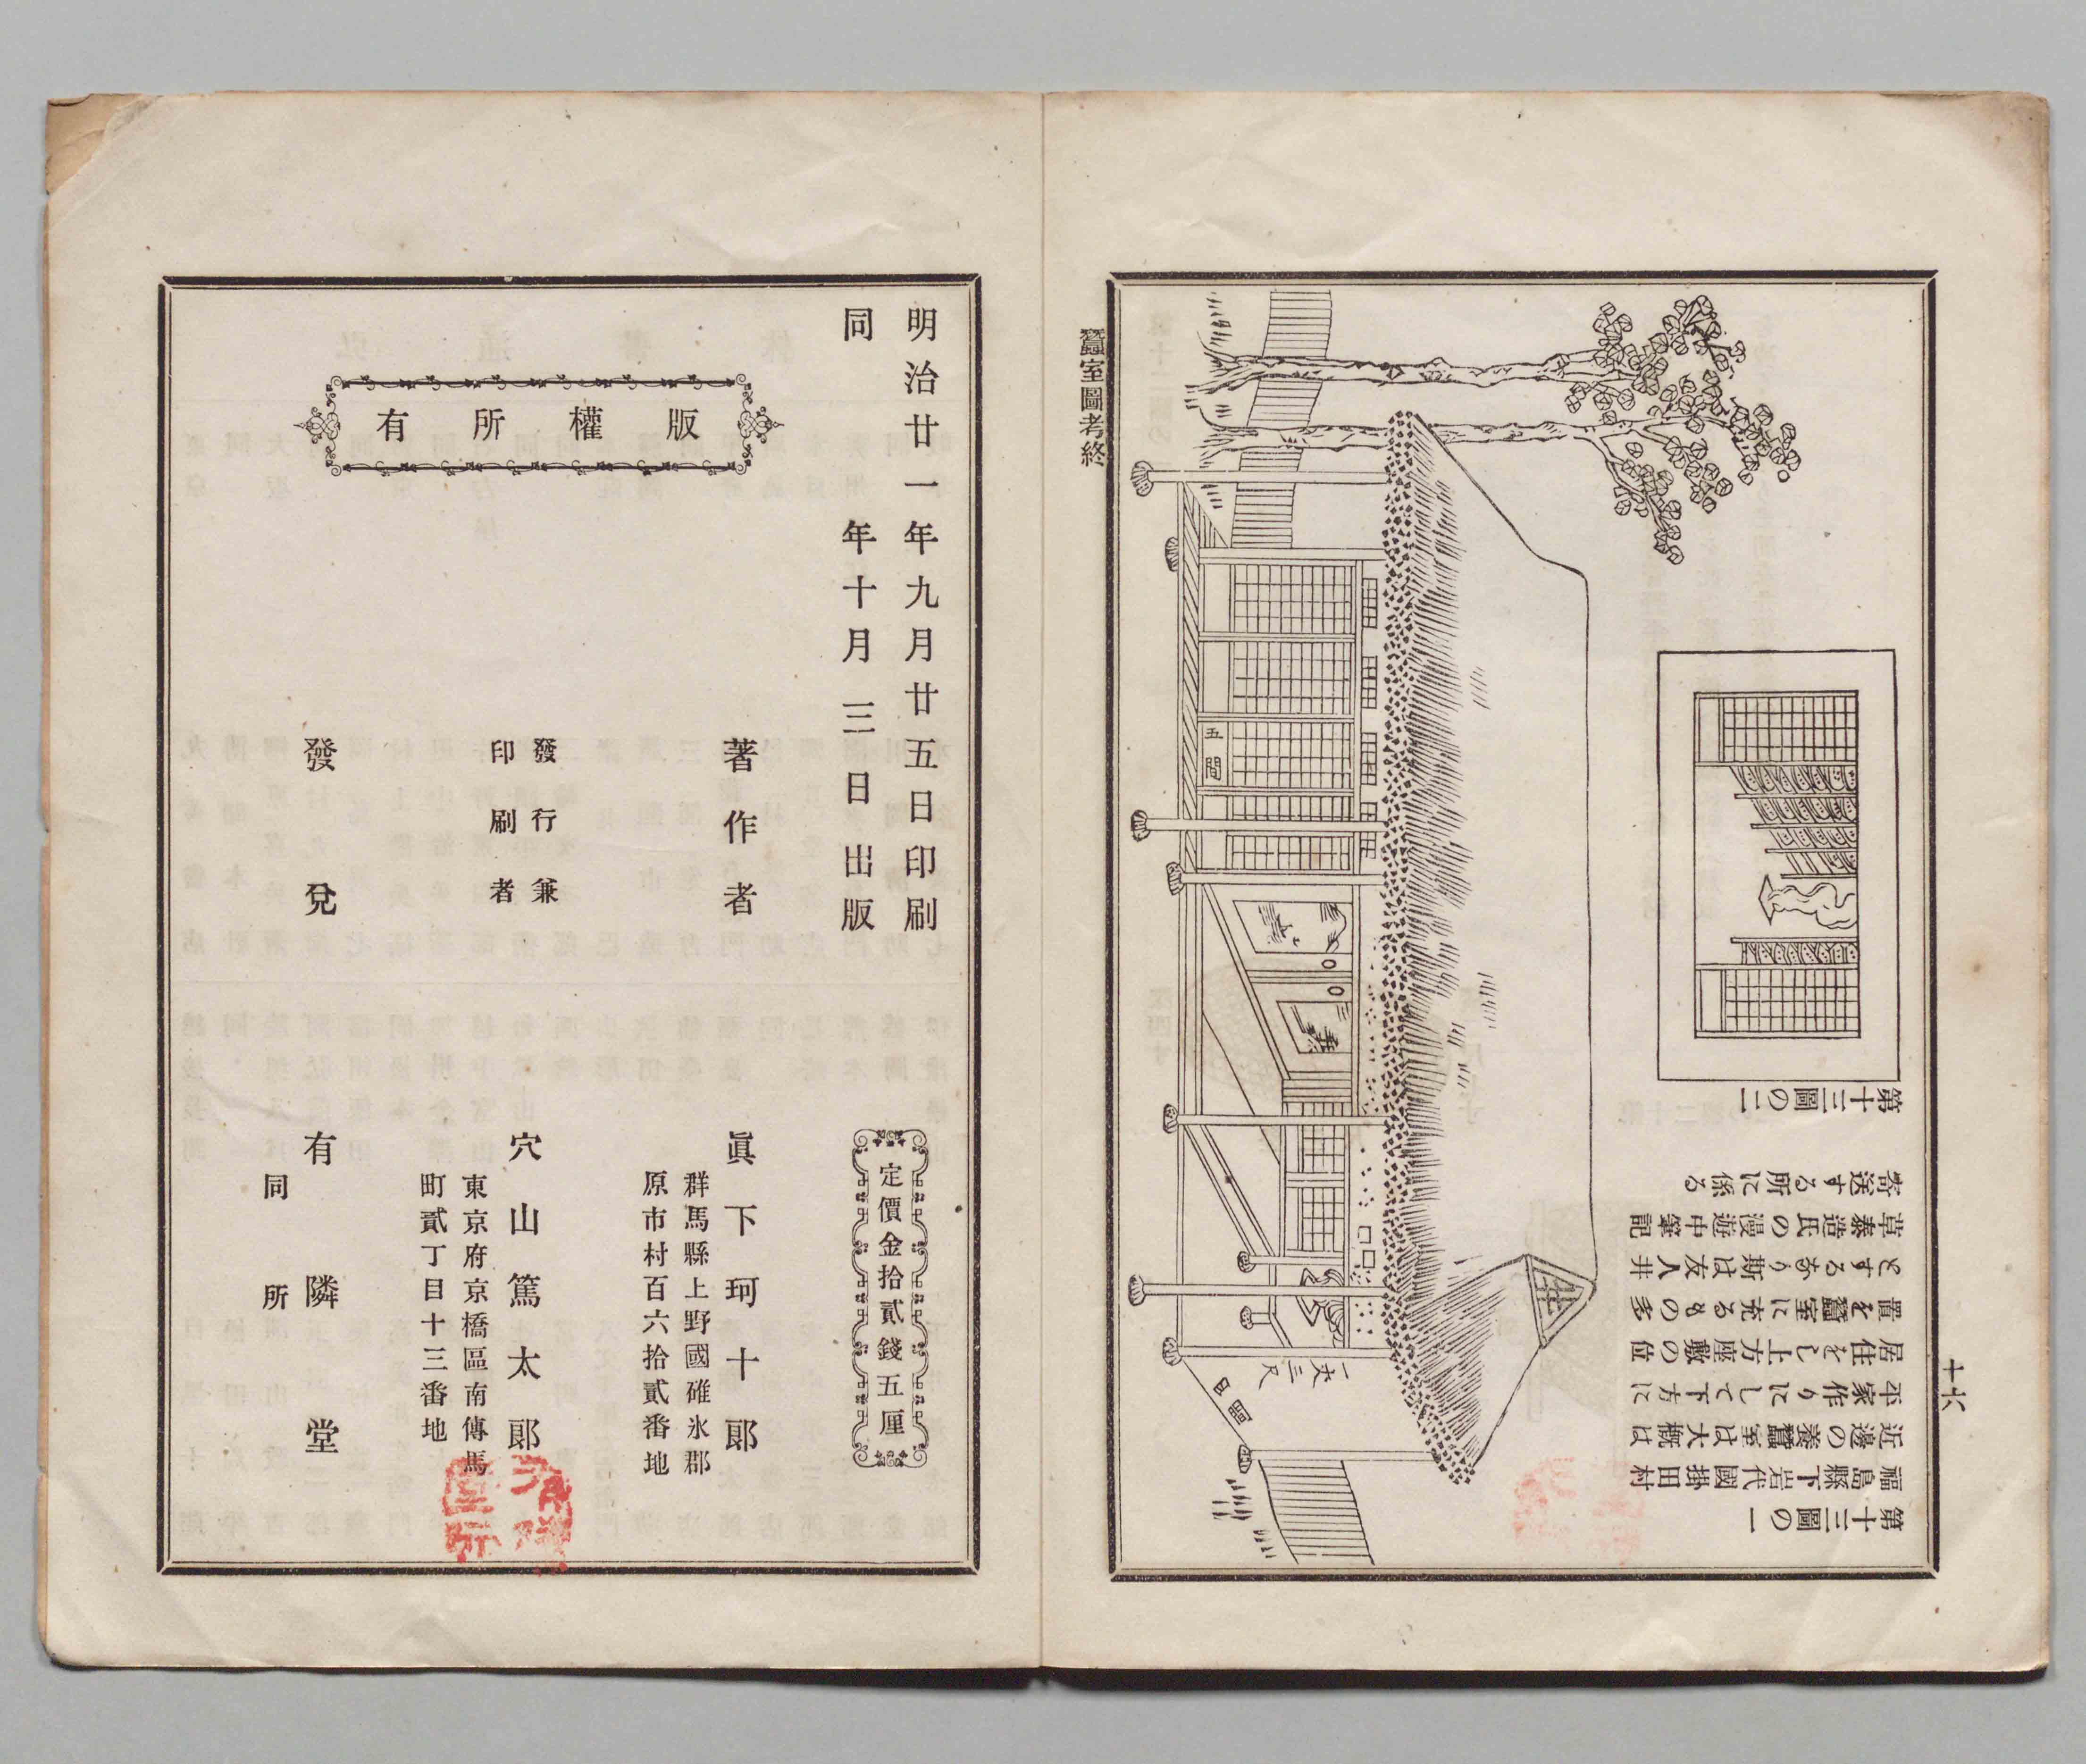 十六
第十三圖の一
福島縣下岩代國掛田村
近邊の養蠶室は大概は
平家作りにして下方に
居住をし上方座敷の位
置を蠶室に充るもの多
とするあり斯は友人井
草泰造氏の漫遊中筆記
寄送する所に係る
第十三圖の二
五間
一丈三尺
蠶室圖考終
明治廿一年九月廿五日印刷
同年十月三日出版
定價金拾貳錢五厘
版權所有
著作者
眞下珂十郞
群馬縣上野國碓氷郡
原市村百六拾貳番地
發行兼
印刷者
穴山篤太郞
東京府京橋區南傳馬
町貳丁目十三番地
發兌
有隣堂
同所